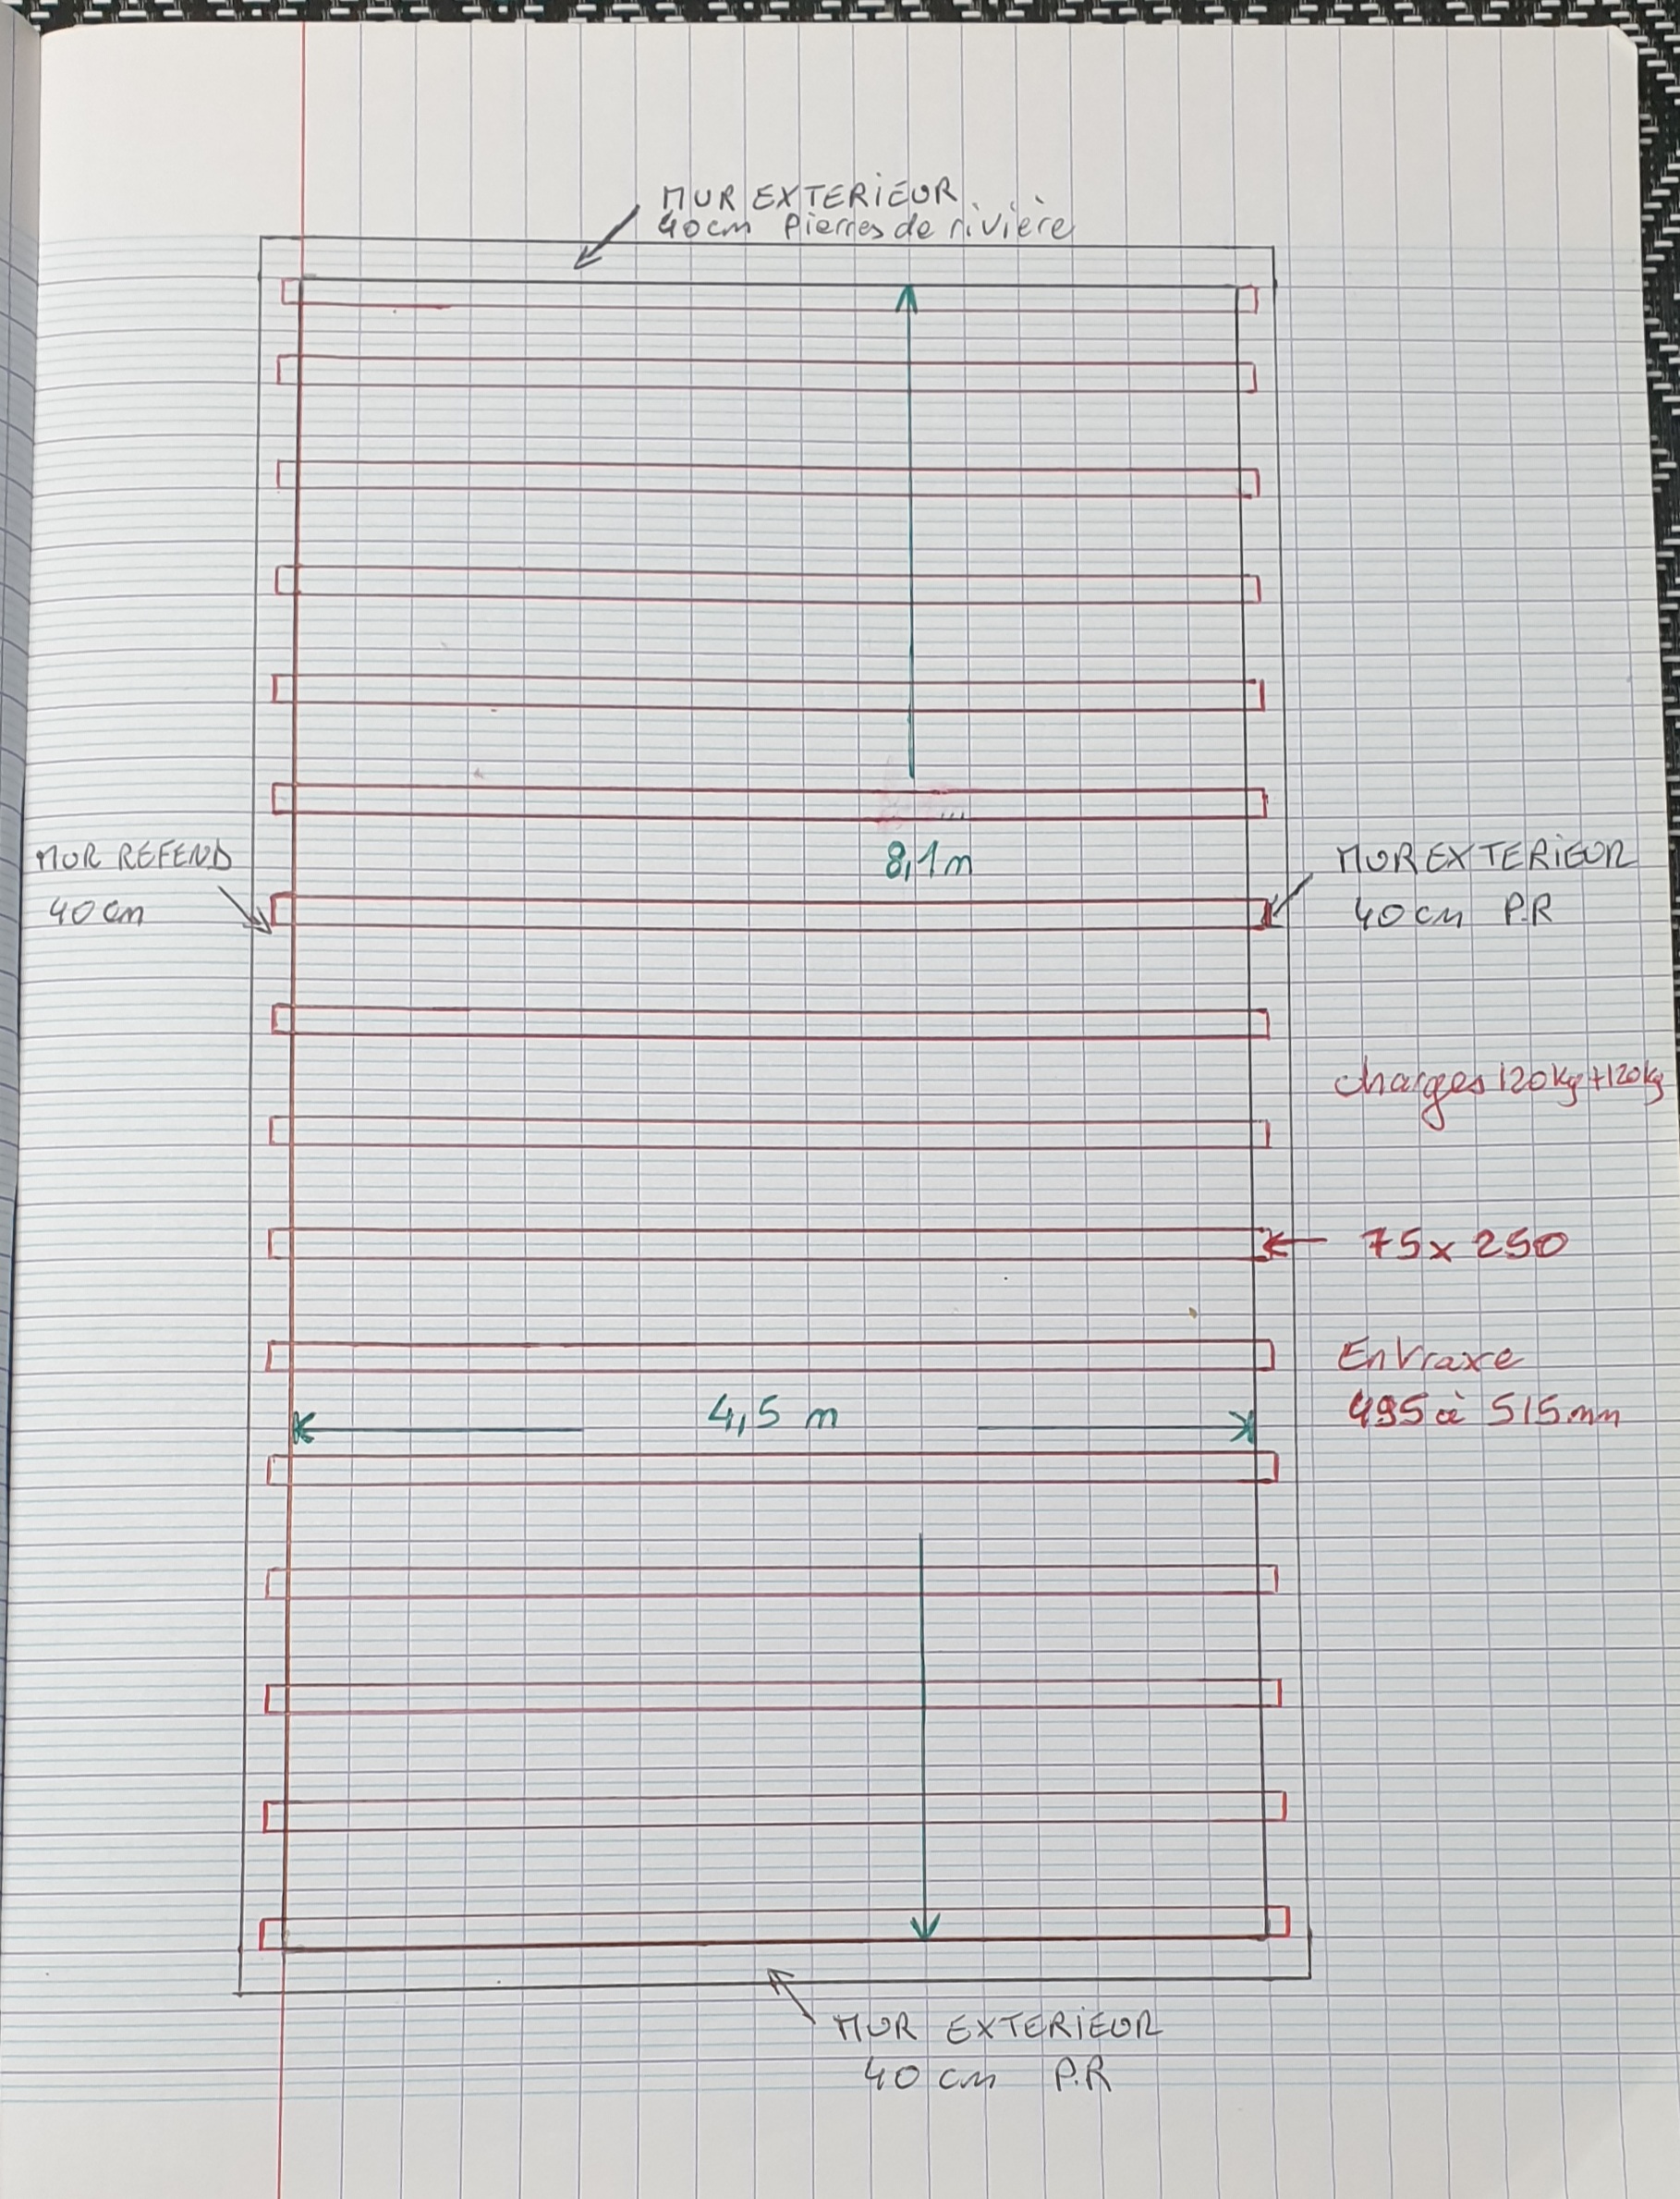 MUR EXTERIEUR
40cm Pierres de rivière
8,1m
MUR REFEND
40cm
MUR EXTERIEUR
40cm P.R
charges 120kg+120kg
75x250
Entraxe
495 à 515mm
4,5 m
MUR EXTERIEUR
40 cm P.R